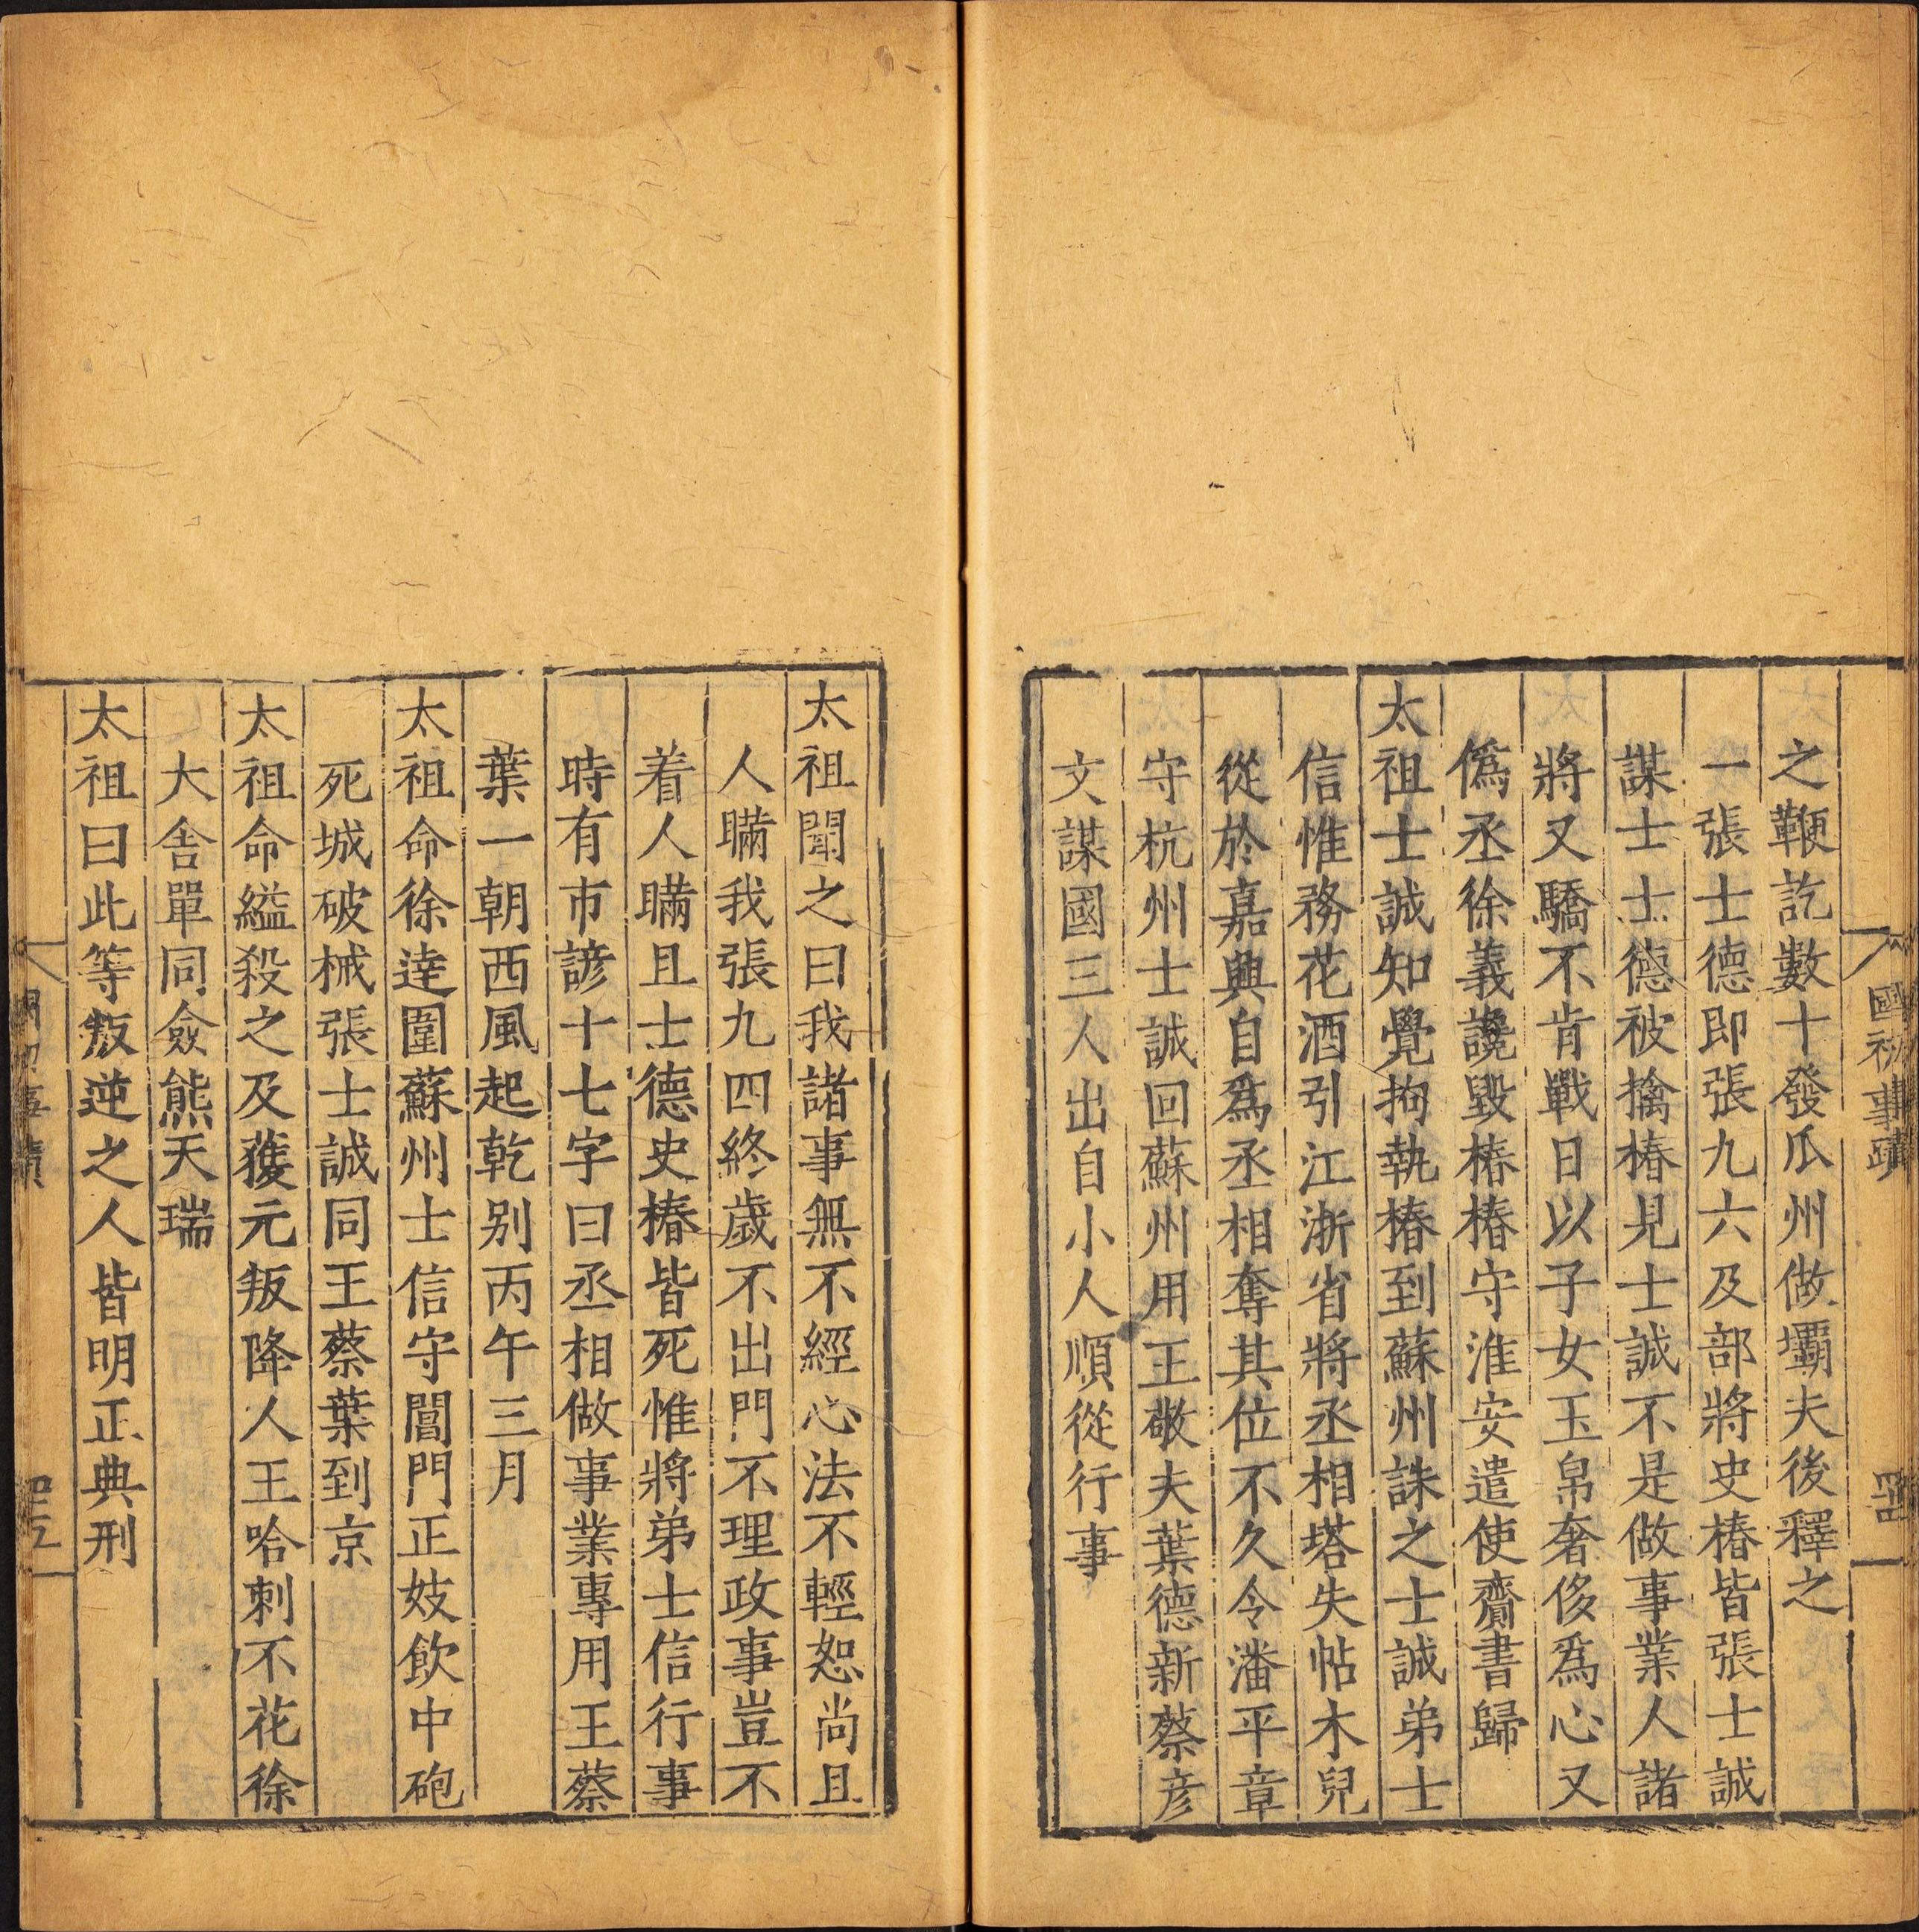 國初事蹟
之鞭訖數十發瓜州做壩夫後釋之
一張士德即張九六及部將史椿皆張士誠
謀士士德被擒椿見士誠不是做事業人諸
將又驕不肯戰日以子女玉帛奢侈爲心又
僞丞徐義讒毀椿椿守淮安遣使齎書歸
太祖士誠知覺拘執椿到蘇州誅之士誠弟士
信惟務花酒引江浙省將丞相塔失帖木兒
從於嘉興自爲丞相奪其位不久令潘平章
守杭州士誠回蘇州用王敬夫葉德新蔡彦
文謀國三人出自小人順從行事
太祖聞之曰我諸事無不經心法不輕恕尚且
人瞞我張九四終歲不出門不理政事豈不
着人瞞且士德史椿皆死惟將弟士信行事
時有市諺十七字曰丞相做事業專用王蔡
葉一朝西風起乾别丙午三月
太祖命徐逹圍蘇州士信守閶門正妓飲中砲
死城破械張士誠同王蔡葉到京
太祖命縊殺之及獲元叛降人王哈刺不花徐
大舎單同僉熊天瑞
太祖曰此等叛逆之人皆明正典刑